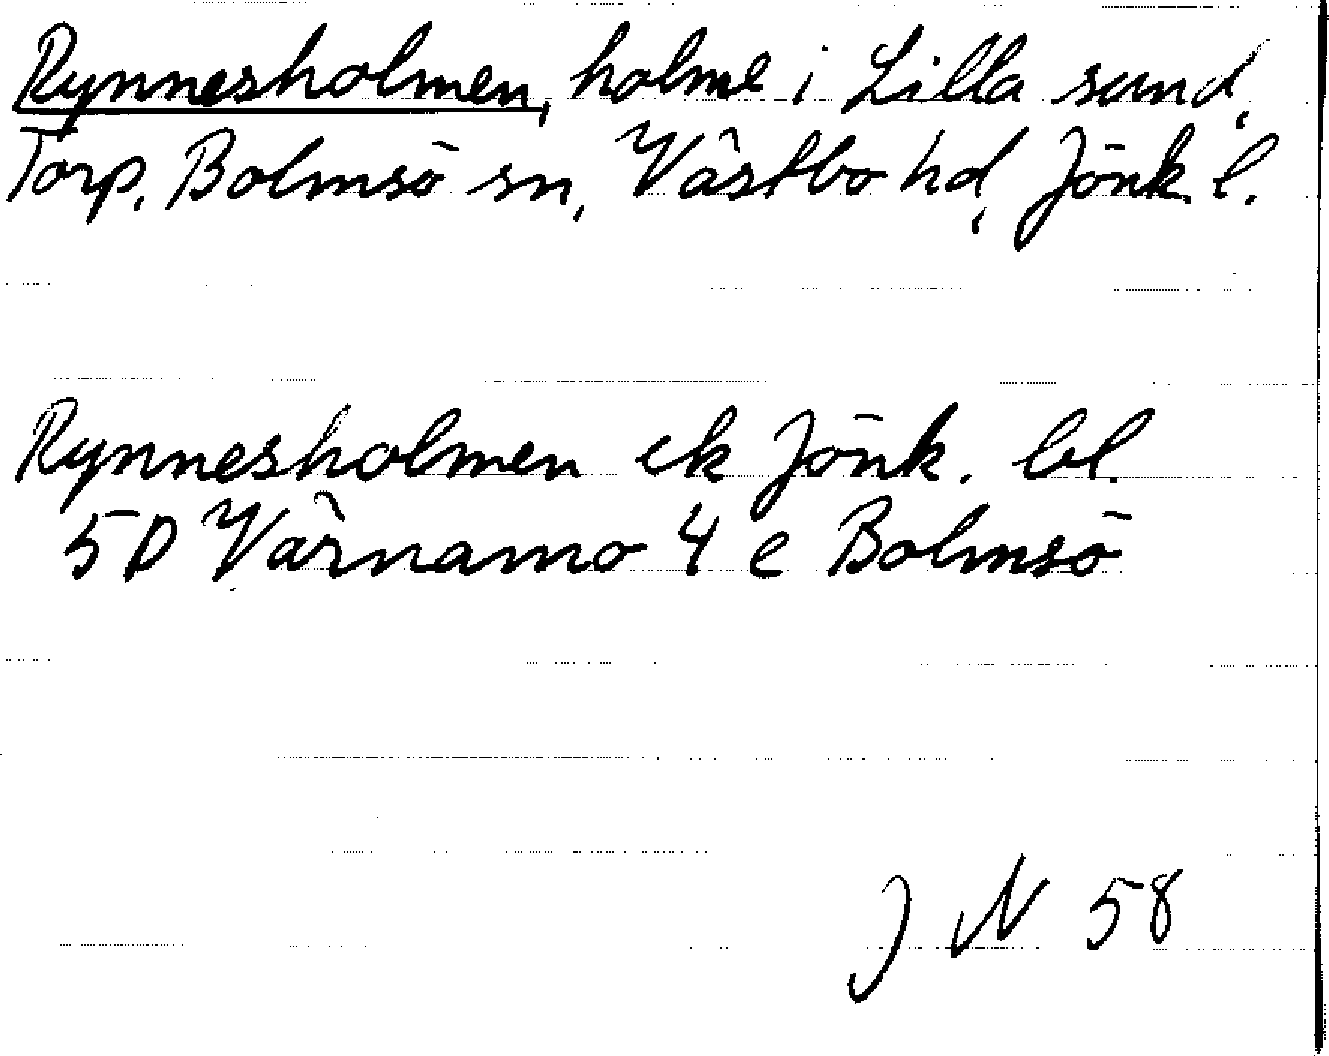 Rynnesholmen, holme i Lilla sund,
Torp, Bolmsö sn, Västbo hd, Jönk. l.
Rynnesholmen ek Jönk. bl.
5D Värnamo 4 e Bolmsö
J N 58